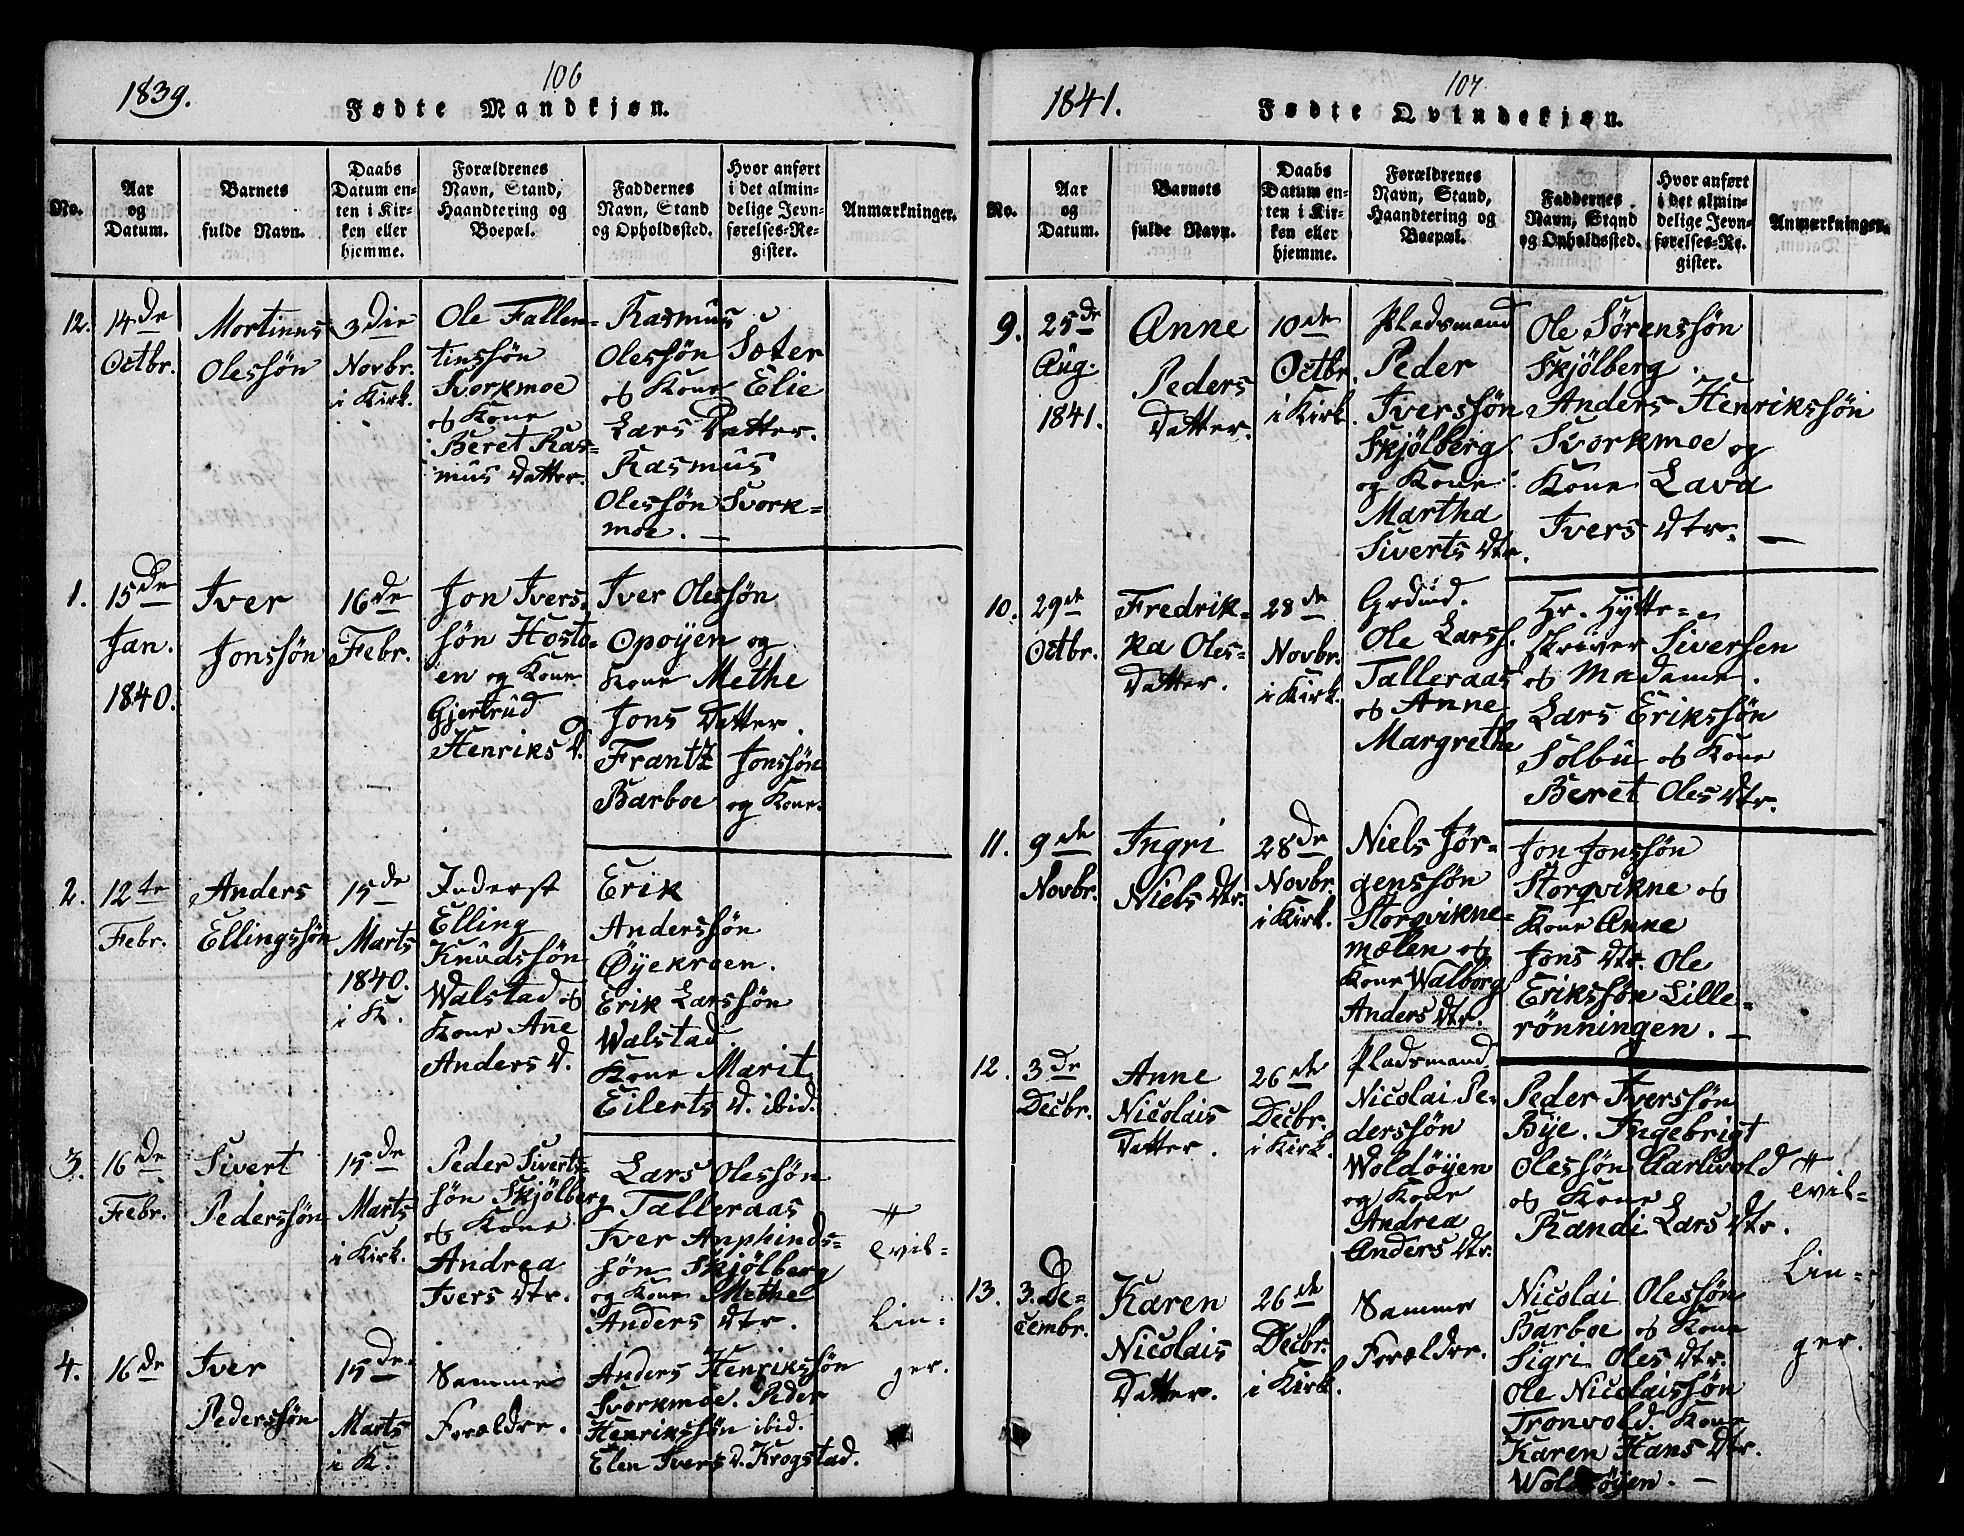 1839.
106
Fødte Mandkjøn.
No.
Aar
og
Datum.
Barnets
fulde Navn.
Daabs
Datum en-
ten i Kir-
ken eller
hjemme.
Forældrenes
Navn, Stand,
Haandtering og
Boepæl.
Faddernes
Navn, Stand
og Opholdssted.
Hvor anført
i det almin-
delige Jevn-
førelses-Re-
gister.
Anmærkninger.
12.
14de
Octbr.
Mortinus
Olessøn
3die
Novbr.
i Kirk.
Ole Fallen-
tinssøn
Svorkmoe
og Kone
Beret Ras-
mus Datter.
Rasmus
Olessøn Soter
og Kone Elie
Lars Datter.
Rasmus
Olessøn Svork-
moe. —
1.
15de
Jan.
1840.
Iver
Jonssøn
16de
Febr.
Jon Ivers-
søn Hosto-
en og Kone
Gjertrud
Henriks D.
Iver Olessøn
Opøyen og
Kone Methe
Jons Datter.
Frantz Jonssøn
Barboe og Kone.
2.
12te
Febr.
Anders
Ellingssøn
15de
Marts
1840.
i K.
Inderst
Elling
Knudssøn
Walstad og
Kone Ane
Anders D.
Erik
Anderssøn
Øyekroen.
Erik Larssøn
Walstad.
Kone Marit
Eilerts D. ibid.
3.
16de
Febr.
Sivert
Pederssøn
15de
Marts
i Kirk.
Peder Siverts-
søn Skjølberg
og Kone
Andrea
Ivers Dtr.
Lars Olessøn
Talleraas
Iver Anphinds-
søn Skjølberg
og Kone Methe
Anders Dtr.
#
Tvil-
lin-
ger.
4.
16de
Iver
Pederssøn
15de
Marts
i K.
Samme
Forældre.
Anders Henrikssøn
Svorkmoe. Peder
Henrikssøn ibid.
Elen Ivers D. Krogstad.
1841.
107
Fødte Qvindekjøn.
No.
Aar
og
Datum.
Barnets
fulde Navn.
Daabs
Datum en-
ten i Kir-
ken eller
hjemme.
Forældrenes
Navn, Stand,
Haandtering og
Boepæl.
Faddernes
Navn, Stand
og Opholdssted.
Hvor anført
i det almin-
delige Jevn-
førelses-Re-
gister.
Anmærkninger.
9.
25de
Aug.
1841.
Anne
Peders
Datter.
10de
Octbr.
i Kirk.
Pladsmand
Peder
Iverssøn
Skjølberg
og Kone
Martha
Siverts Dtr.
Ole Sørenssøn
Skjølberg.
Anders Henrikssøn
Svorkmoe og
Kone Lava
Ivers Dtr. —
10.
29de
Octbr.
Fredrik-
ka Oles-
Datter.
28de
Novbr.
i Kirk.
Grdmd.
Ole Larss.
Talleraas
og Anne
Margrethe
Hr. Hytte-
skriver Siversen
og Madame.
Lars Erikssøn
Solbu og Kone
Beret Oles Dtr.
11.
9de
Novbr.
Ingri
Niels Dtr.
28de
Novbr.
i Kirk.
Niels Jør-
genssøn
Storqvikne-
mælen og
Kone Walborg
Anders Dtr.
Jon Jonssøn
Storqvikne og
Kone Anne
Jons Dtr. Ole
Erikssøn Lille-
rønningen. —
12.
3de
Decbr.
Anne
Nicolais
Datter.
26de
Decbr.
i Kirk.
Pladsmand
Nicolai Pe-
derssøn
Woldøyen
og Kone
Andrea
Anders Dtr.
Peder Iverssøn
Bye. Ingebrigt
Olessøn Aarlivold
og Kone
Randi Lars Dtr.
#
Tvil-
lin-
ger.
13.
3. De-
cembr.
Karen
Nicolais
Datter.
26de
Decbr.
i Kirk.
Samme
Forældre.
Nicolai Olessøn
Barboe og Kone
Sigri Oles Dtr.
Ole Nicolaissøn
Tronvold. Kone
Karen Hans Dtr.
Woldøyen. —